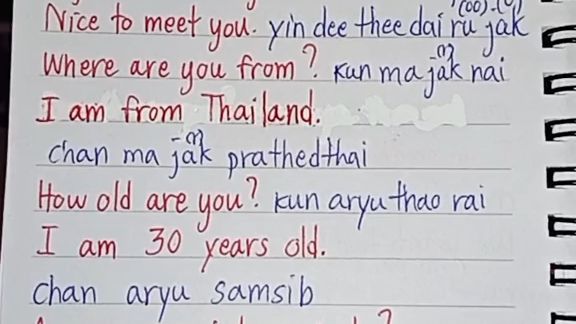 (oo) - (u)
Nice to meet you. yin dee thee dai ru jak
Where are you from? kun ma jak nai
I am from Thailand.
chan ma jak prathedthai
How old are you? kun aryu thao rai
I am 30 years old.
chan aryu samsib